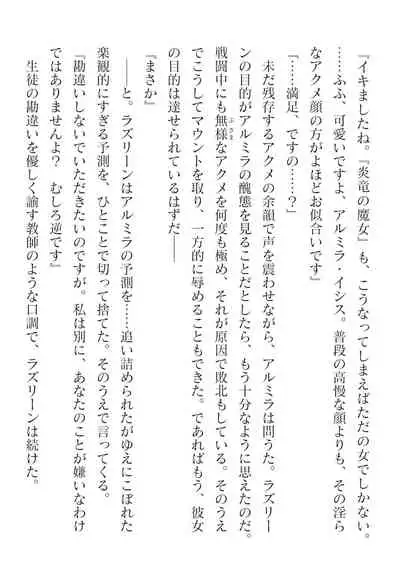 『イキましたね。『炎竜の魔女』も、こうなってしまえばただの女でしかない。
……ふふ、可愛いですよ、アルミラ・イシス。普段の高慢な顔よりも、その淫ら
なアクメ顔の方がよほどお似合いです』
「……満足、ですの……？」
未だ残存するアクメの余韻で声を震わせながら、アルミラは問うた。ラズリー
ンの目的がアルミラの醜態を見ることだとしたら、もう十分なように思えたのだ。
戦闘中にも無様なアクメを何度も極め、それが原因で敗北もしている。そのうえ
ぶざま
でこうしてマウントを取り、一方的に辱めることもできた。であればもう、彼女
の目的は達せられているはずだ――
『まさか』
――と。ラズリーンはアルミラの予測を……追い詰められたがゆえにこぼれた
楽観的にすぎる予測を、ひとことで切って捨てた。そのうえで言ってくる。
『勘違いしないでいただきたいのですが。私は別に、あなたのことが嫌いなわけ
ではありませんよ？　むしろ逆です』
生徒の勘違いを優しく諭す教師のような口調で、ラズリーンは続けた。